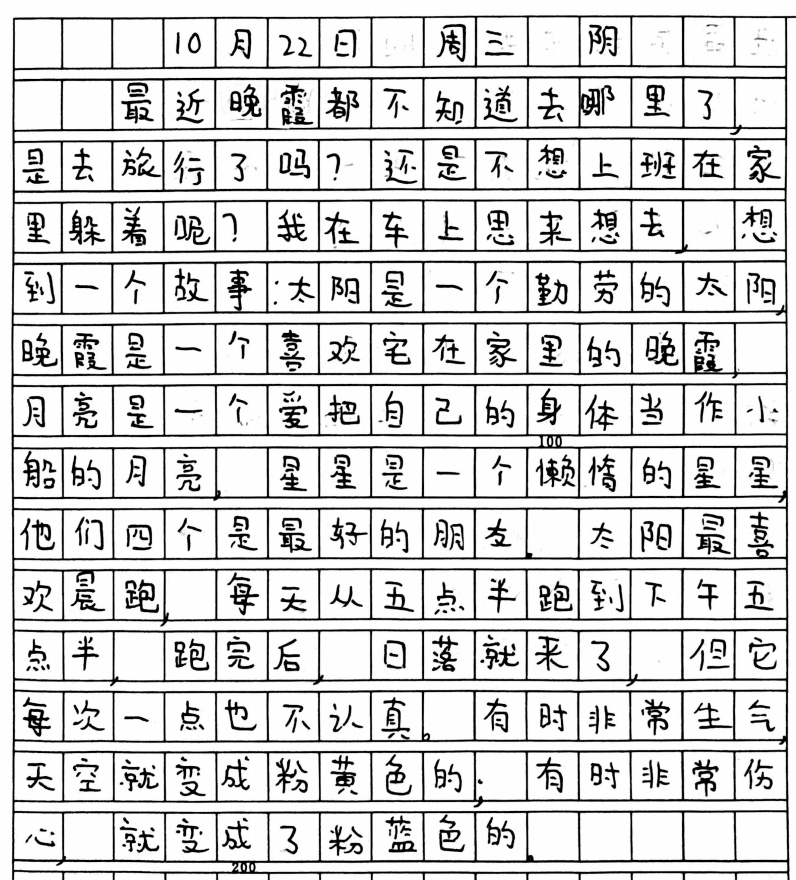 10月22日 周三 阴
最近晚霞都不知道去哪里了,
是去旅行了吗?还是不想上班在家
里躲着呢?我在车上思来想去,想
到一个故事:太阳是一个勤劳的太阳,
晚霞是一个喜欢宅在家里的晚霞,
月亮是一个爱把自己的身体当作小
100
船的月亮,星星是一个懒惰的星星,
他们四个是最好的朋友.太阳最喜
欢晨跑,每天从五点半跑到下午五
点半,跑完后,日落就来了,但它
每次一点也不认真。有时非常生气,
天空就变成粉黄色的;有时非常伤
心,就变成了粉蓝色的.
200